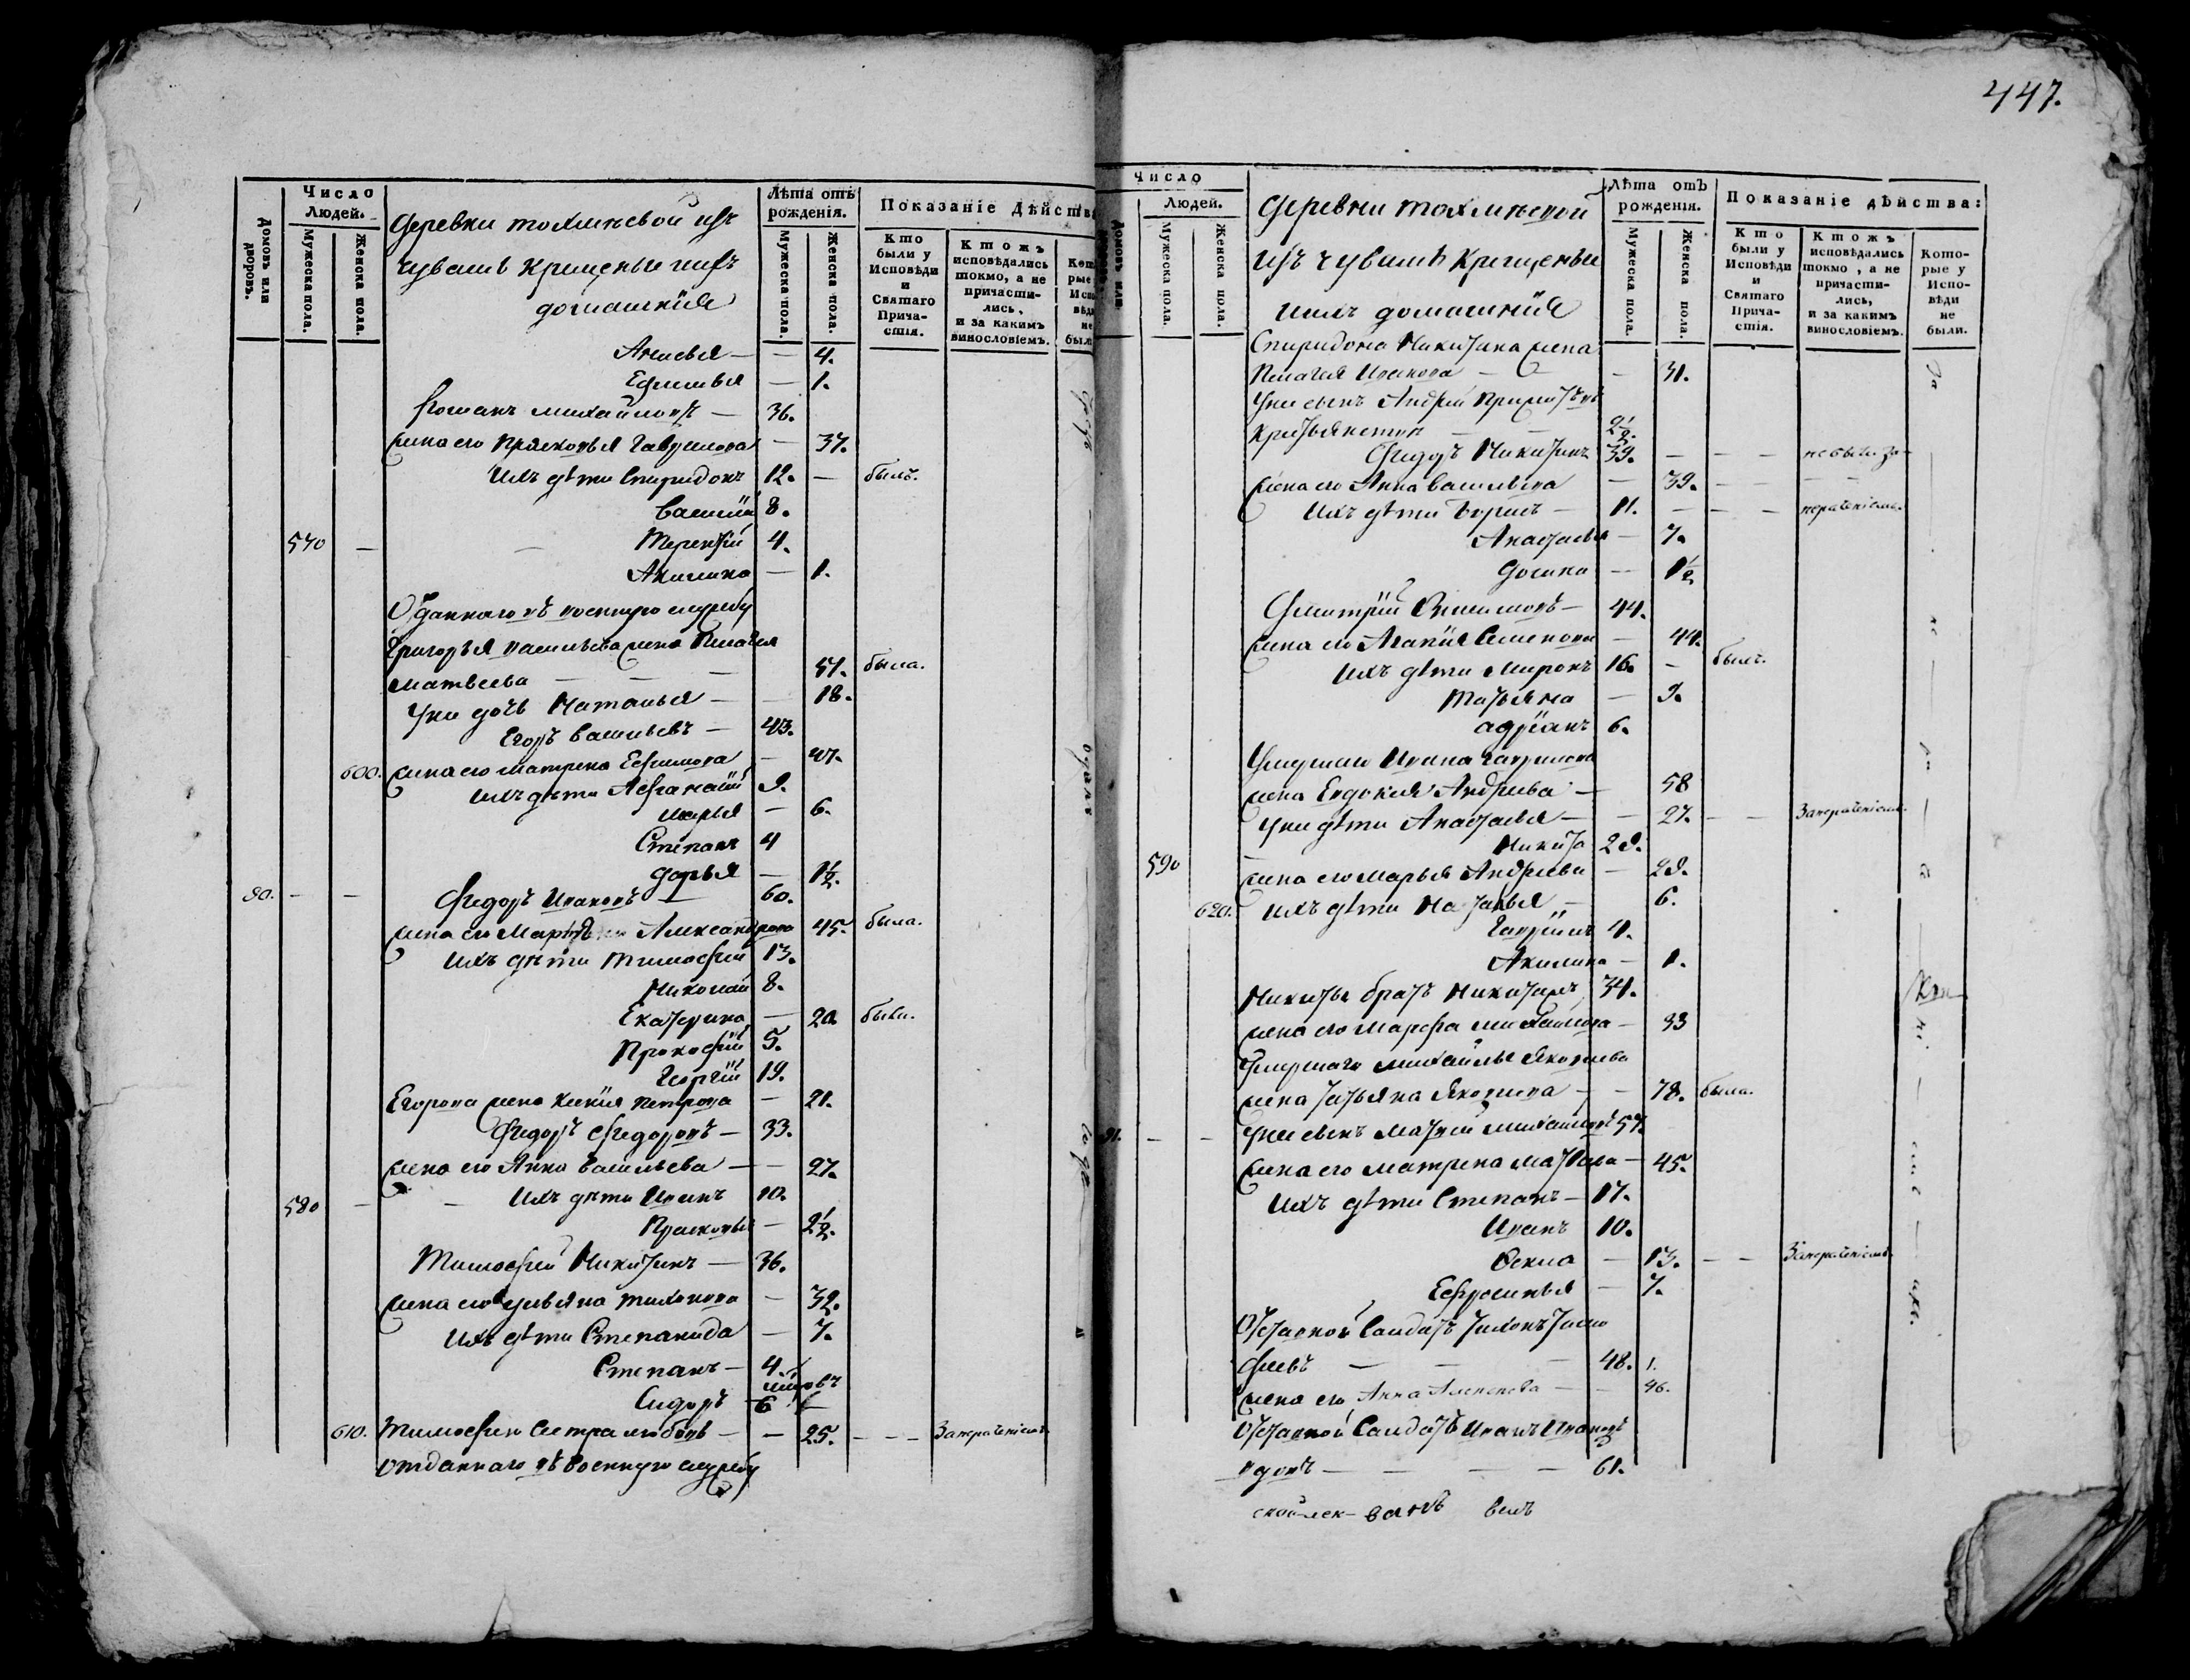 447.
Число
Людей.
Домовъ или дворовъ.
Мужеска пола.
Женска пола.
деревни
чувашъ крещеные ихъ
домашнїя
Лѣта отъ
рожденія.
Мужеска пола.
Женска пола.
Показаніе дѣйств
Кто были у Исповѣди и Святаго Прича-стія.
Ктожъ исповѣдались токмо, а не причасти-лись, и за какимъ винословіемъ.
— 4.
— 1.
Романъ Михайловъ — 36.
жена его Прасковья Гаврилова — 37.
Ихъ дѣти Спиридонъ 12. — былъ.
Василїй 8.
570 — — Терентїй 4.
Акилина — 1.
Отданнаго въ военную службу
Григорья Васильева жена Пелагея
Матвеева — — — 51. была.
У ней дочь Наталья — — 18.
Егоръ Васильевъ — 43.
600. жена его Матрена Ефимова — 47.
Ихъ дѣти Афанасїй 9.
Марья — 6.
Степанъ 4
Дарья — 1½.
80. — — Федоръ Ивановъ — 60.
жена его Александрова 45. была.
Ихъ дѣти Тимофей 13.
Николай 8.
Екатерина — 20. были.
Прокофїй 5.
Георгїй 19.
Егорова жена Ксенїя Петрова — 21.
Федоръ Федоровъ — 33.
жена его Анна Васильева — — 27.
580 — — Ихъ дѣти Иванъ 10.
Прасковья — 2½.
Тимофей Никитинъ — 36.
жена его Ульяна Тихонова — 32.
Ихъ дѣти Степанида — 7.
Степанъ — 4.
Сидоръ 6
610. Тимофея сестра Любовь — — 25. — — Занераченіемъ.
Отданнаго въ военную службу
Число
Людей.
Домовъ или
Мужеска пола.
Женска пола.
деревни
изъ чувашъ крещеные
ихъ домашнїя
Лѣта отъ
рожденія.
Мужеска пола.
Женска пола.
Показаніе дѣйства:
Кто были у Исповѣди и Святаго Прича-стія.
Ктожъ исповѣдались токмо, а не причасти-лись, и за какимъ винословіемъ.
Кото-рые у Испо-вѣди не были.
Спиридона Никитина жена
Пелагея Иванова — — — 31.
У ней сынъ Андрей
2½.
Федоръ Никитинъ 39. — — —
жена его Анна Васильева — 39. — — —
Ихъ дѣти Борисъ — 11. — — — нераченіемъ.
Анастасья — 7.
— 1½
Дмитрїй 44.
жена его Агапїя Семенова — 44.
Ихъ дѣти Миронъ 16. — былъ.
Татьяна — 9.
Адрїанъ 6.
Умершаго Ивана Гаврилова
жена Евдокия Андреева — 58
У ней дѣти Анастасья — — 27. — — Занераченіемъ.
Никита 29.
590 жена его Марья Андреева — 29.
620. Ихъ дѣти Наталья — 6.
Гаврїилъ 4.
Акилина — 1.
Никиты братъ 34.
жена его Марфа Михайлова — 33
Умершаго Михайлы Яковлева
жена Татьяна Яковлева — — 78. была.
81. — — У ней сынъ Матвей Михайловъ 57.
жена его Матрена Матвеева — 45.
Ихъ дѣти Степанъ — 17.
Иванъ 10.
— 13. — — Занераченіемъ.
Ефросинья — 7.
Отставной Салдатъ Тихонъ Тимо
феевъ — — — 48.
жена его Анна — — 46.
Отставной Салдатъ Иванъ Ивановъ
вдовъ — — — — 61.